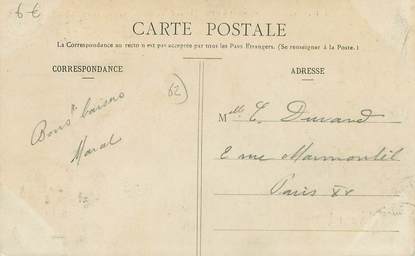 6 €
CARTE POSTALE
La Correspondance au recto n est pas acceptée par tous les Pays Étrangers. (Se renseigner à la Poste.)
CORRESPONDANCE
62
Bons baisers
ADRESSE
Mlle C. Durand
2 rue Marmontel
Paris XV